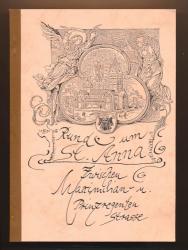 Rund um
St. Anna
Zwischen
Maximilian- u.
Prinzregenten
Strasse